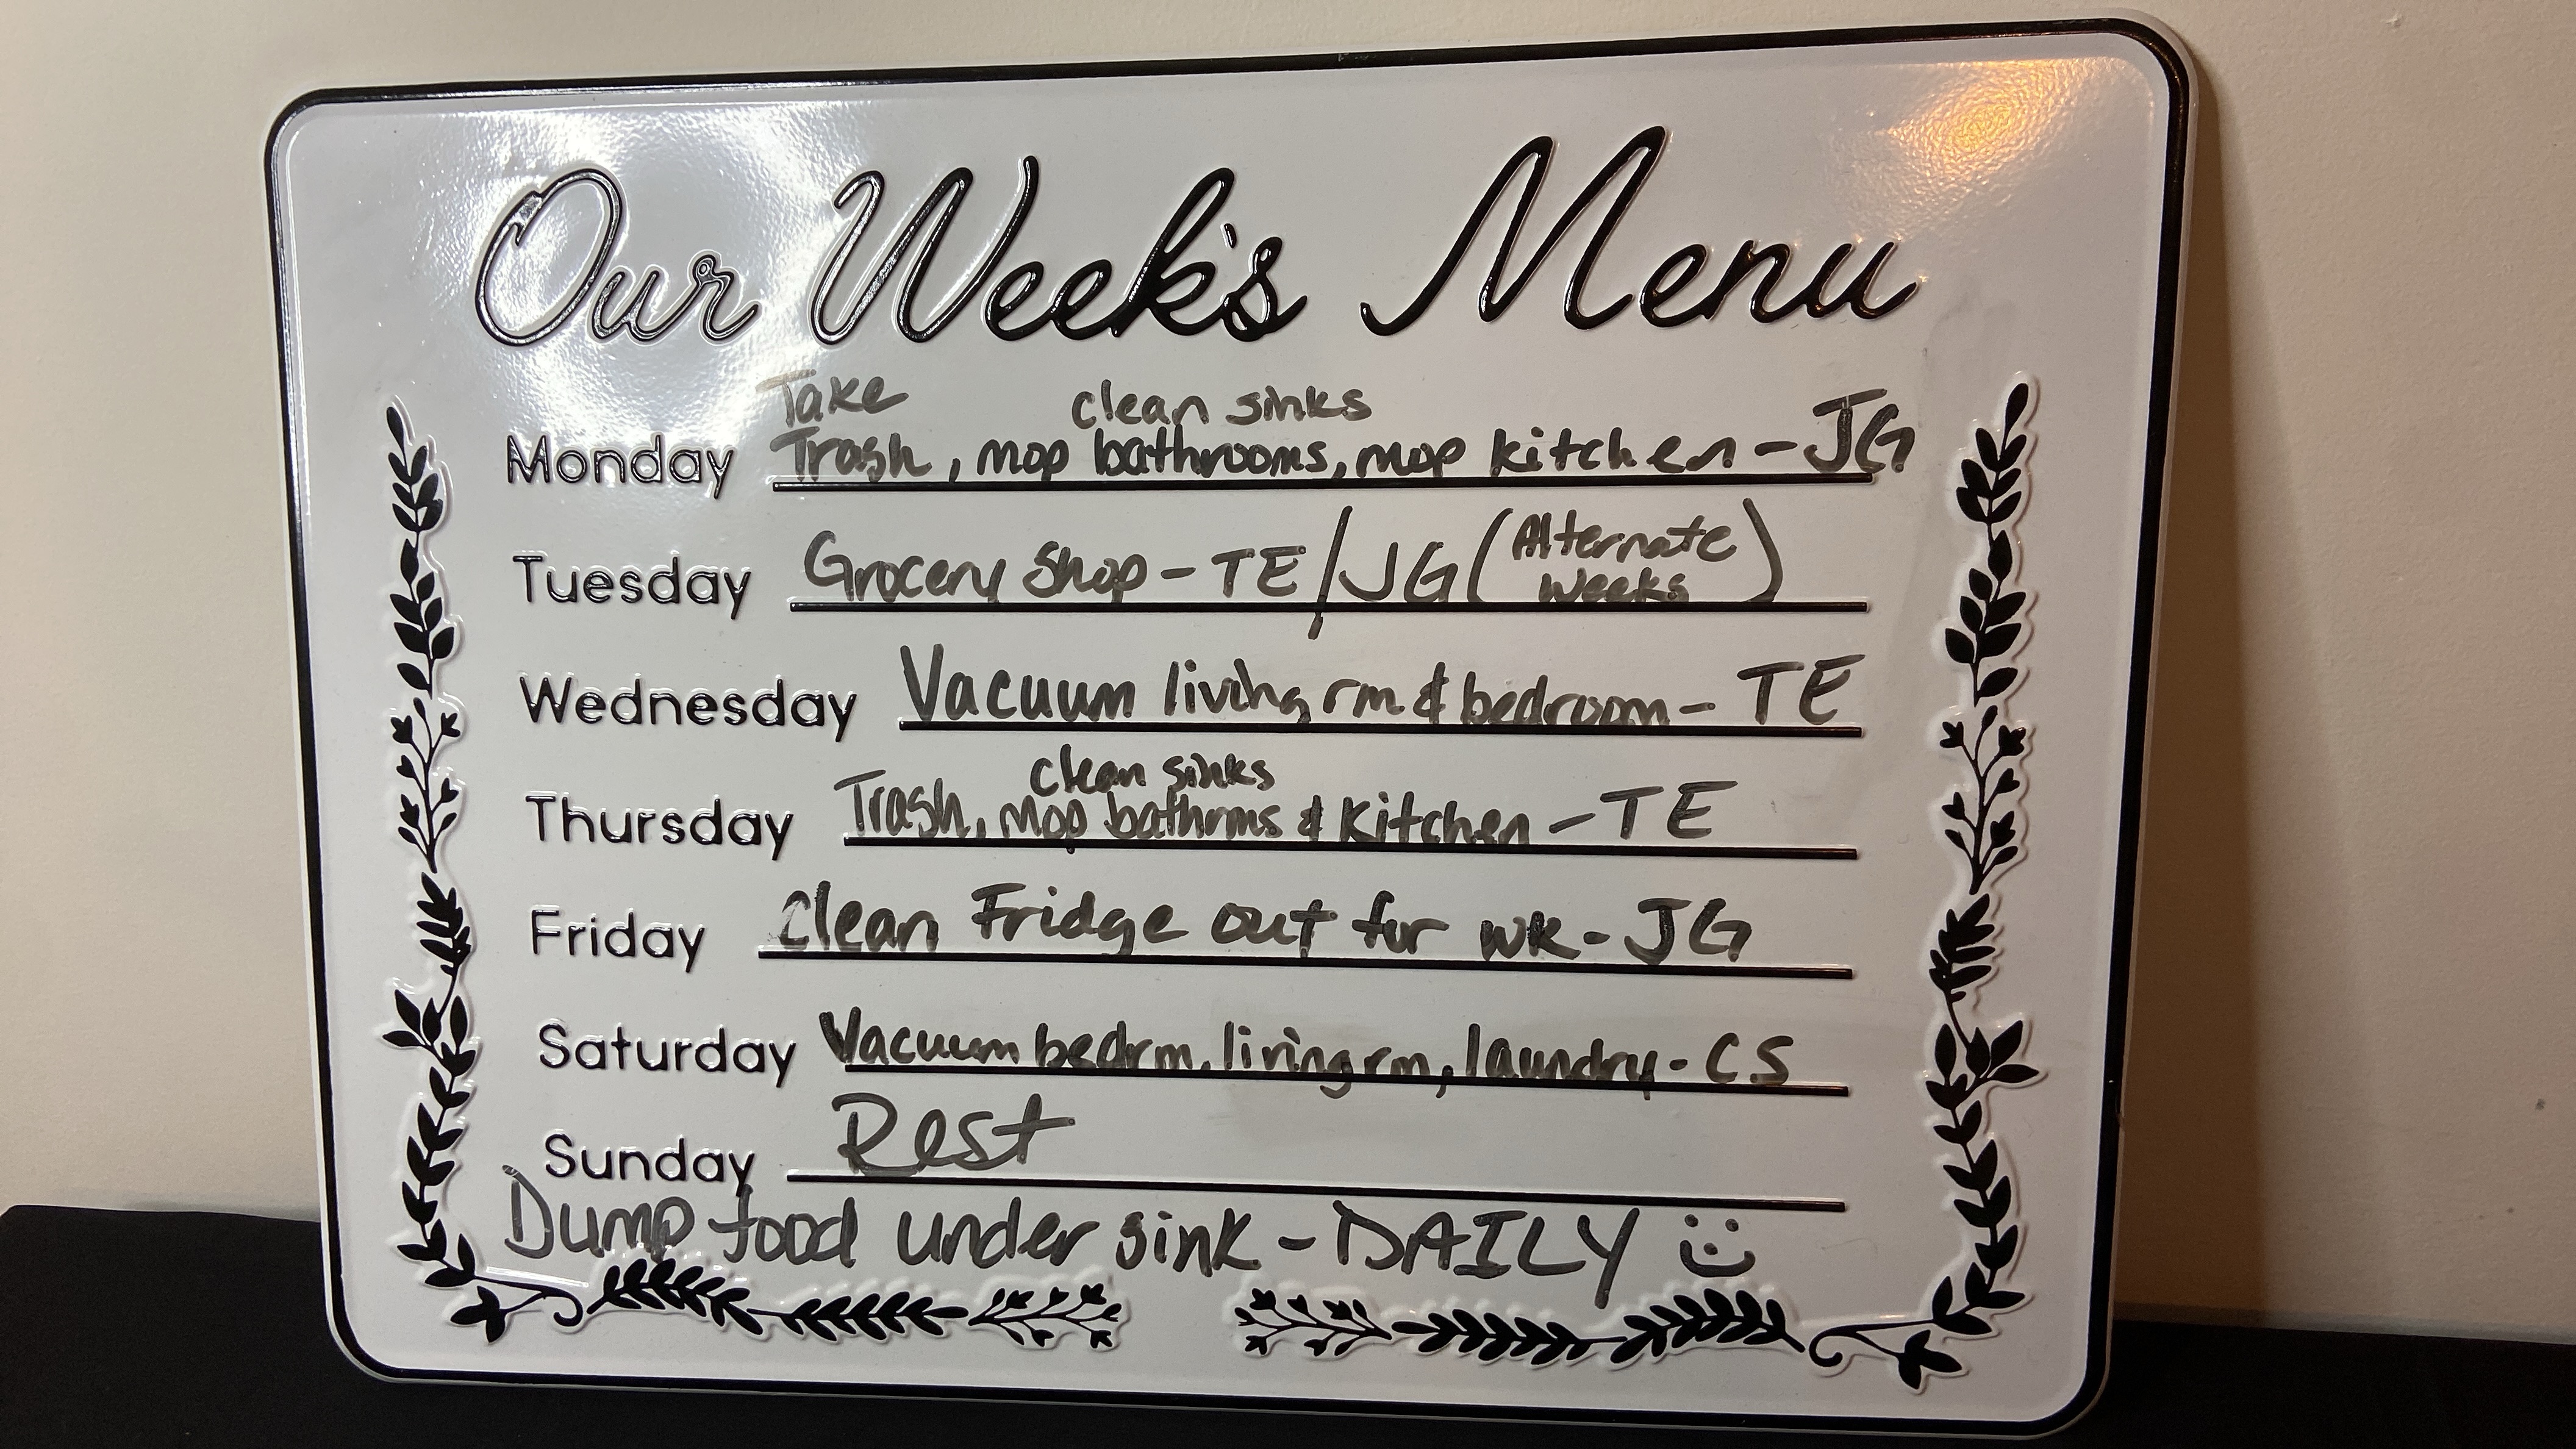 Our Week's Menu
Take clean sinks
Monday Trash, mop bathrooms, mop kitchen - JG
Tuesday Grocery Shop - TE/JG (Alternate Weeks)
Wednesday Vacuum living rm & bedroom - TE
clean sinks
Thursday Trash, mop bathrms & kitchen - TE
Friday Clean Fridge out for wk - JG
Saturday Vacuum bedrm, living rm, laundry - CS
Sunday Rest
Dump food under sink - DAILY